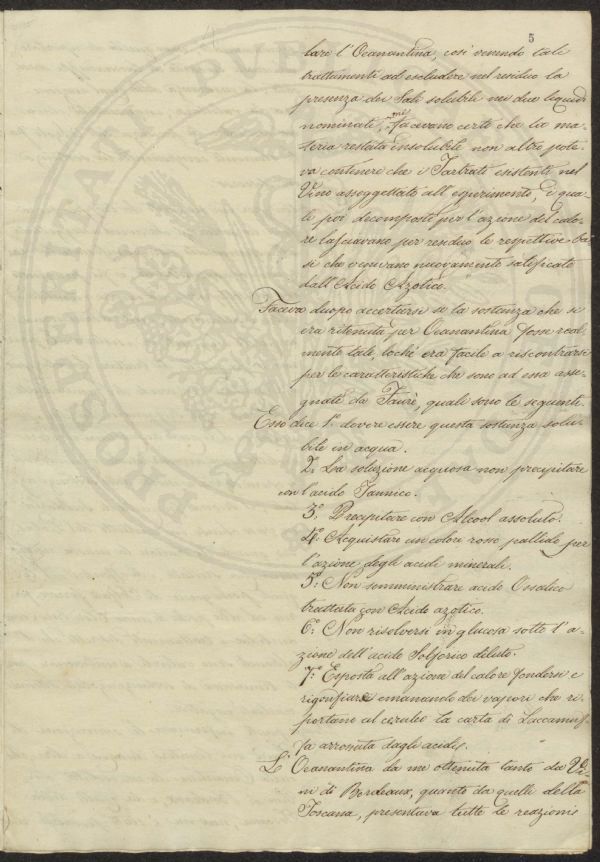 5
lare l'Oenantina, così venendo tale
trattamenti ad escludere nel residuo la
presenza dei Sali solubile nei due liquidi
nominati, mi facevano certo che la ma-
teria restata insolubile non altro pote-
va contenere che i Tartrati esistenti nel
Vino assoggettato all'esperimento, i qua-
li poi decomposti per l'azione del calo-
re lasciavano per residuo le respettive Ba-
si che venivano nuovamente satificate
dall'Acido Azotico.
Faceva duopo accertarsi se la sostanza che si
era ritenuta per Oenantina fosse real-
mente tale, lochè era facile a riscontrarsi
per le caratteristiche che sono ad essa asse-
gnate da Faurè, quali sono le seguenti.
Esso dice 1º dovere essere questa sostanza solu-
bile in acqua.
2º La soluzione acquosa non precipitare
con l'acido Tannico.
3º Precipitare con Alcool assoluto.
4º Acquistare un colore rosso pallido per
l'azione degli acidi minerali.
5º Non somministrare acido Ossalico
trattata con Acido azotico.
6º Non risolversi in glucosa sotto l'a-
zione dell'acido Solforico diluto.
7º Esposta all'azione del calore fondersi e
rigonfiare emanando dei vapori che ri-
portano al ceruleo la carta di Laccamuf-
fa arrossata dagli acidi.
L'Oenantina da me ottenuta tanto da Vi-
ni di Bordeaux, quanto da quelli della
Toscana, presentava tutte le reazioni